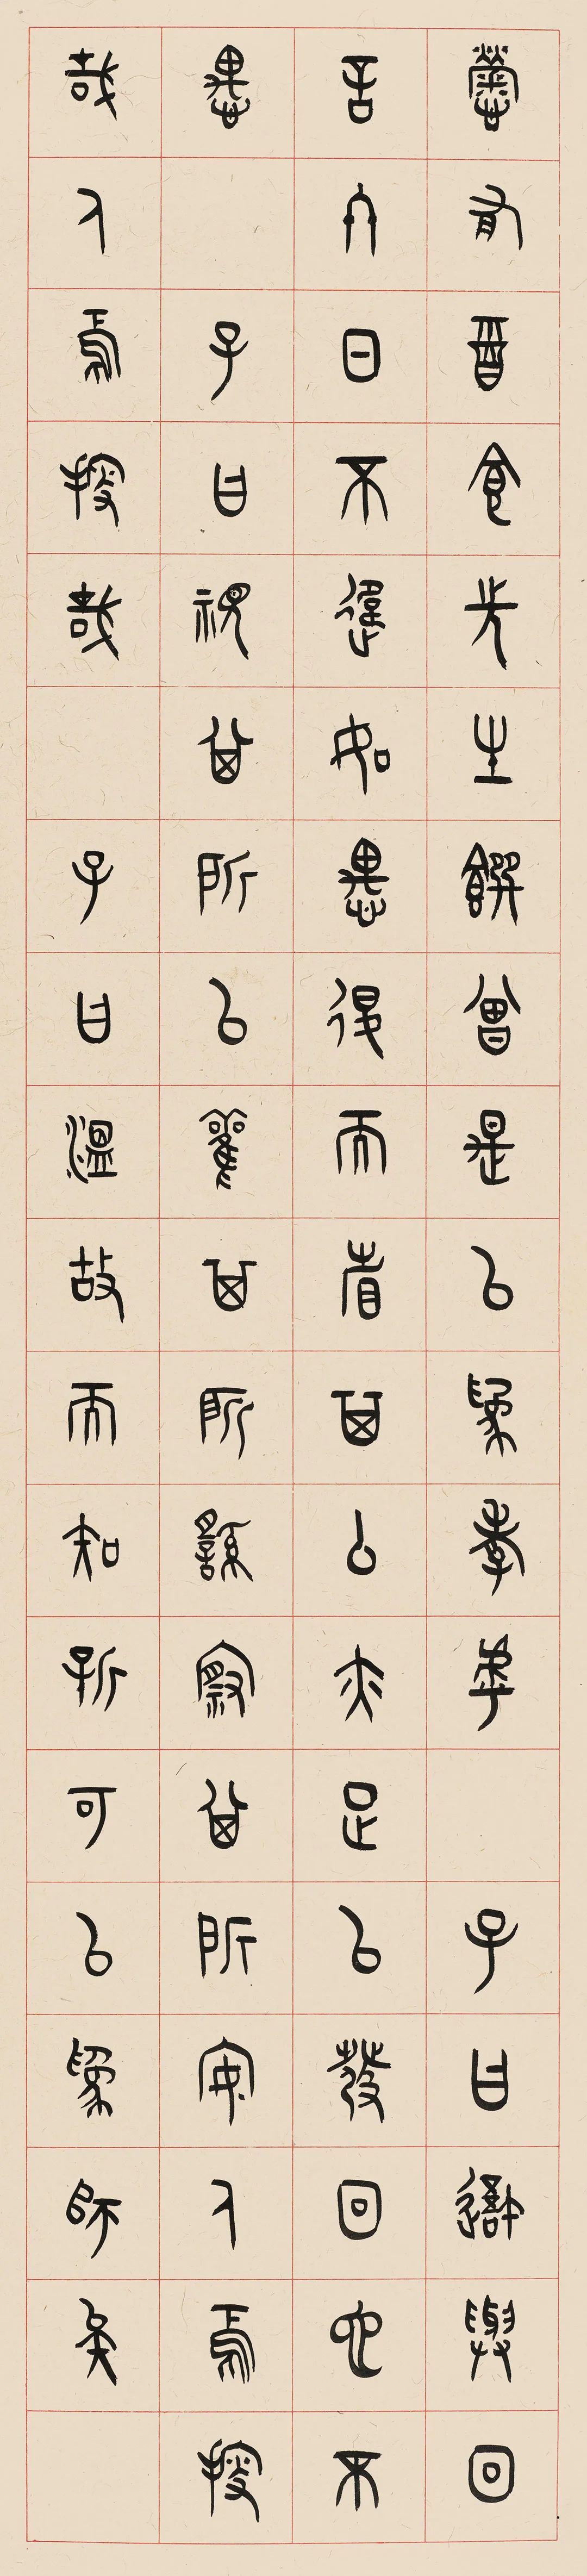 勞有酒食先生饌曾是以為孝乎 子曰吾與回
言終日不違如愚退而省其私亦足以發回也不
愚 子曰視其所以觀其所由察其所安人焉廋
哉人焉廋哉 子曰溫故而知新可以為師矣